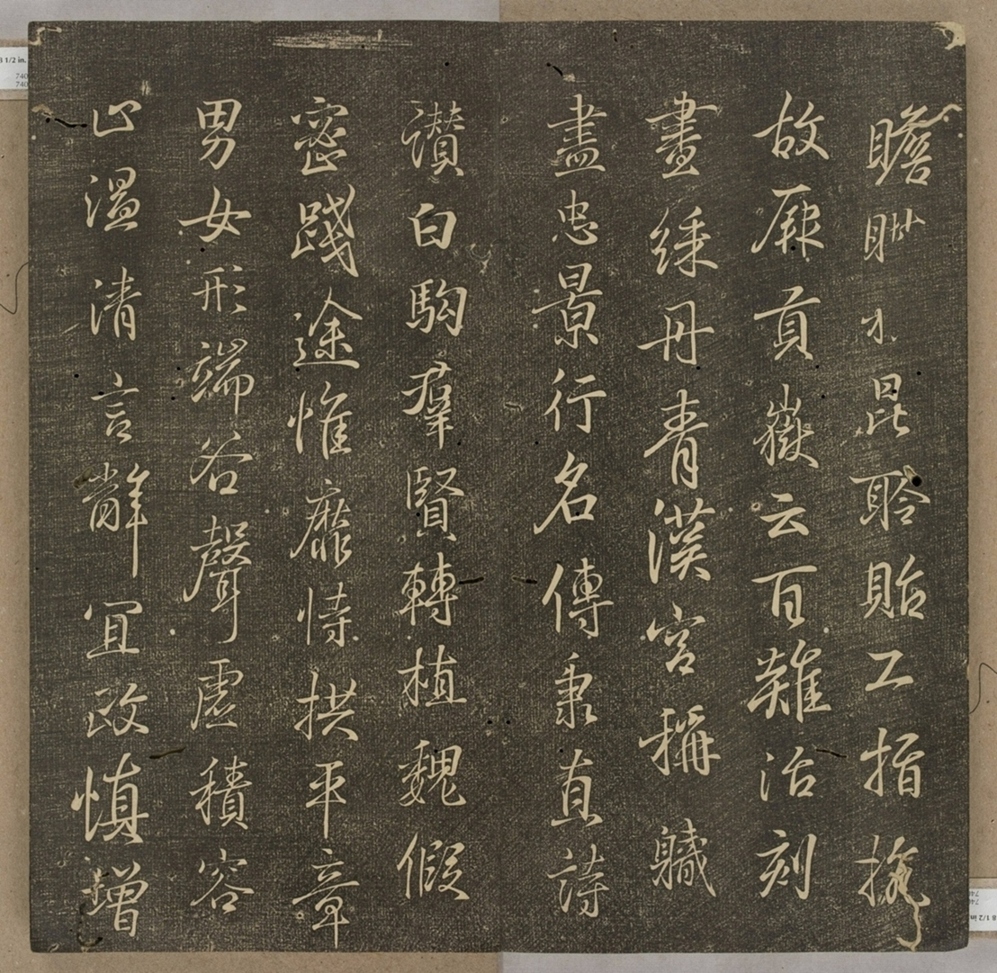 瞻眺昆聆貽工指
故厥貢嶽云百難治刻
畫綵丹青漢宮稱職
盡忠景行名傳秉直詩
讚白駒羣賢轉植魏假
密踐途惟靡恃拱平章
男女形端谷聲虛積容
止溫清言辭宜政慎增